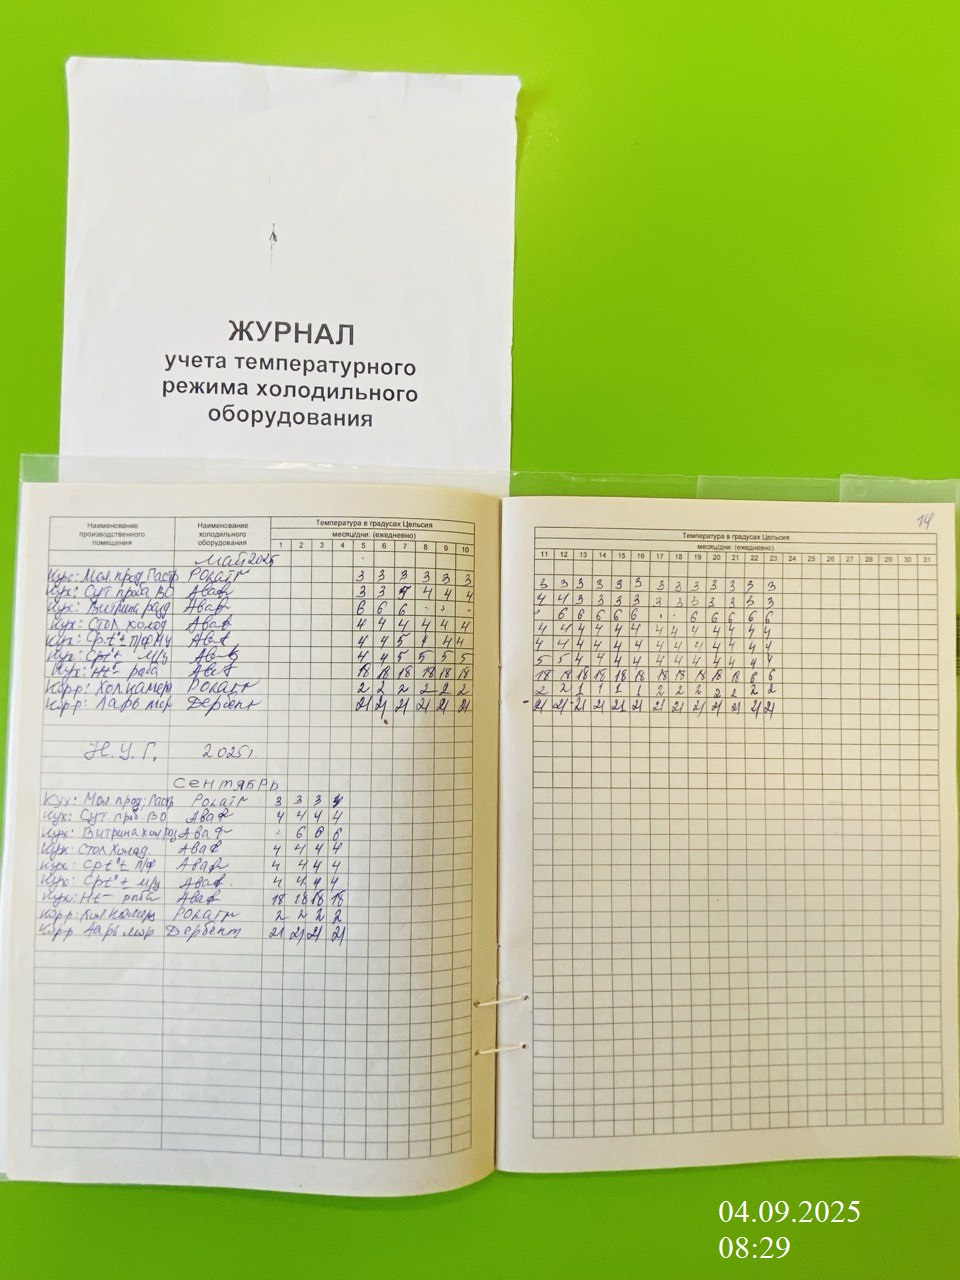 ЖУРНАЛ
учета температурного
режима холодильного
оборудования
14
Наименование производственного помещения
Наименование холодильного оборудования
Температура в градусах Цельсия
месяц/дни (ежедневно)
1 2 3 4 5 6 7 8 9 10
Температура в градусах Цельсия
месяц/дни (ежедневно)
11 12 13 14 15 16 17 18 19 20 21 22 23 24 25 26 27 28 29 30 31
Май 2025
Кух: Мол прод, Гастр 3 3 3 3 3 3
Кух: Сут проба ВО 3 3 4 4 4
Кух: Витрина 6 6 6
Кух: Стол холод 4 4 4 4 4 4
Кух: Ср t°± 4 4 5 4 4
Кух: Ср t°± м/у 4 4 5 5 5 5
Кух: Нt- рыба 18 18 18 18 18 18
Корр: Хол камера 2 2 2 2 2 2
Корр: Ларь мор Дербент 21 21 21 21 21 21
3 3 3 3 3 3 3 3 3 3 3 3 3
4 4 3 3 3 3 3 3 3 3 3 3 3
6 6 6 6 6 6 6 6 6 6
4 4 4 4 4 4 4 4 4 4 4 4 4
4 4 4 4 4 4 4 4 4 4 4 4 4
5 5 4 4 4 4 4 4 4 4 4 4 4
2 2 1 1 1 1 2 2 2 2 2 2 2
21 21 21 21 21 21 21 21 21 21 21 21 21
Н.У.Г. 2025г.
Сентябрь
Кух: Мол прод; Гастр 3 3 3
Кух: Сут проб ВО 4 4 4 4
Кух: Витрина 6 6 6
Кух: Стол Холод. 4 4 4 4
Кух: Ср t°± п/ф 4 4 4 4
Кух: Ср t°± м/у 4 4 4 4
Кух: Нt- рыба 18 18 18 18
Корр: Хол Камера 2 2 2 2
Корр Ларь мор Дербент 21 21 21 21
04.09.2025
08:29